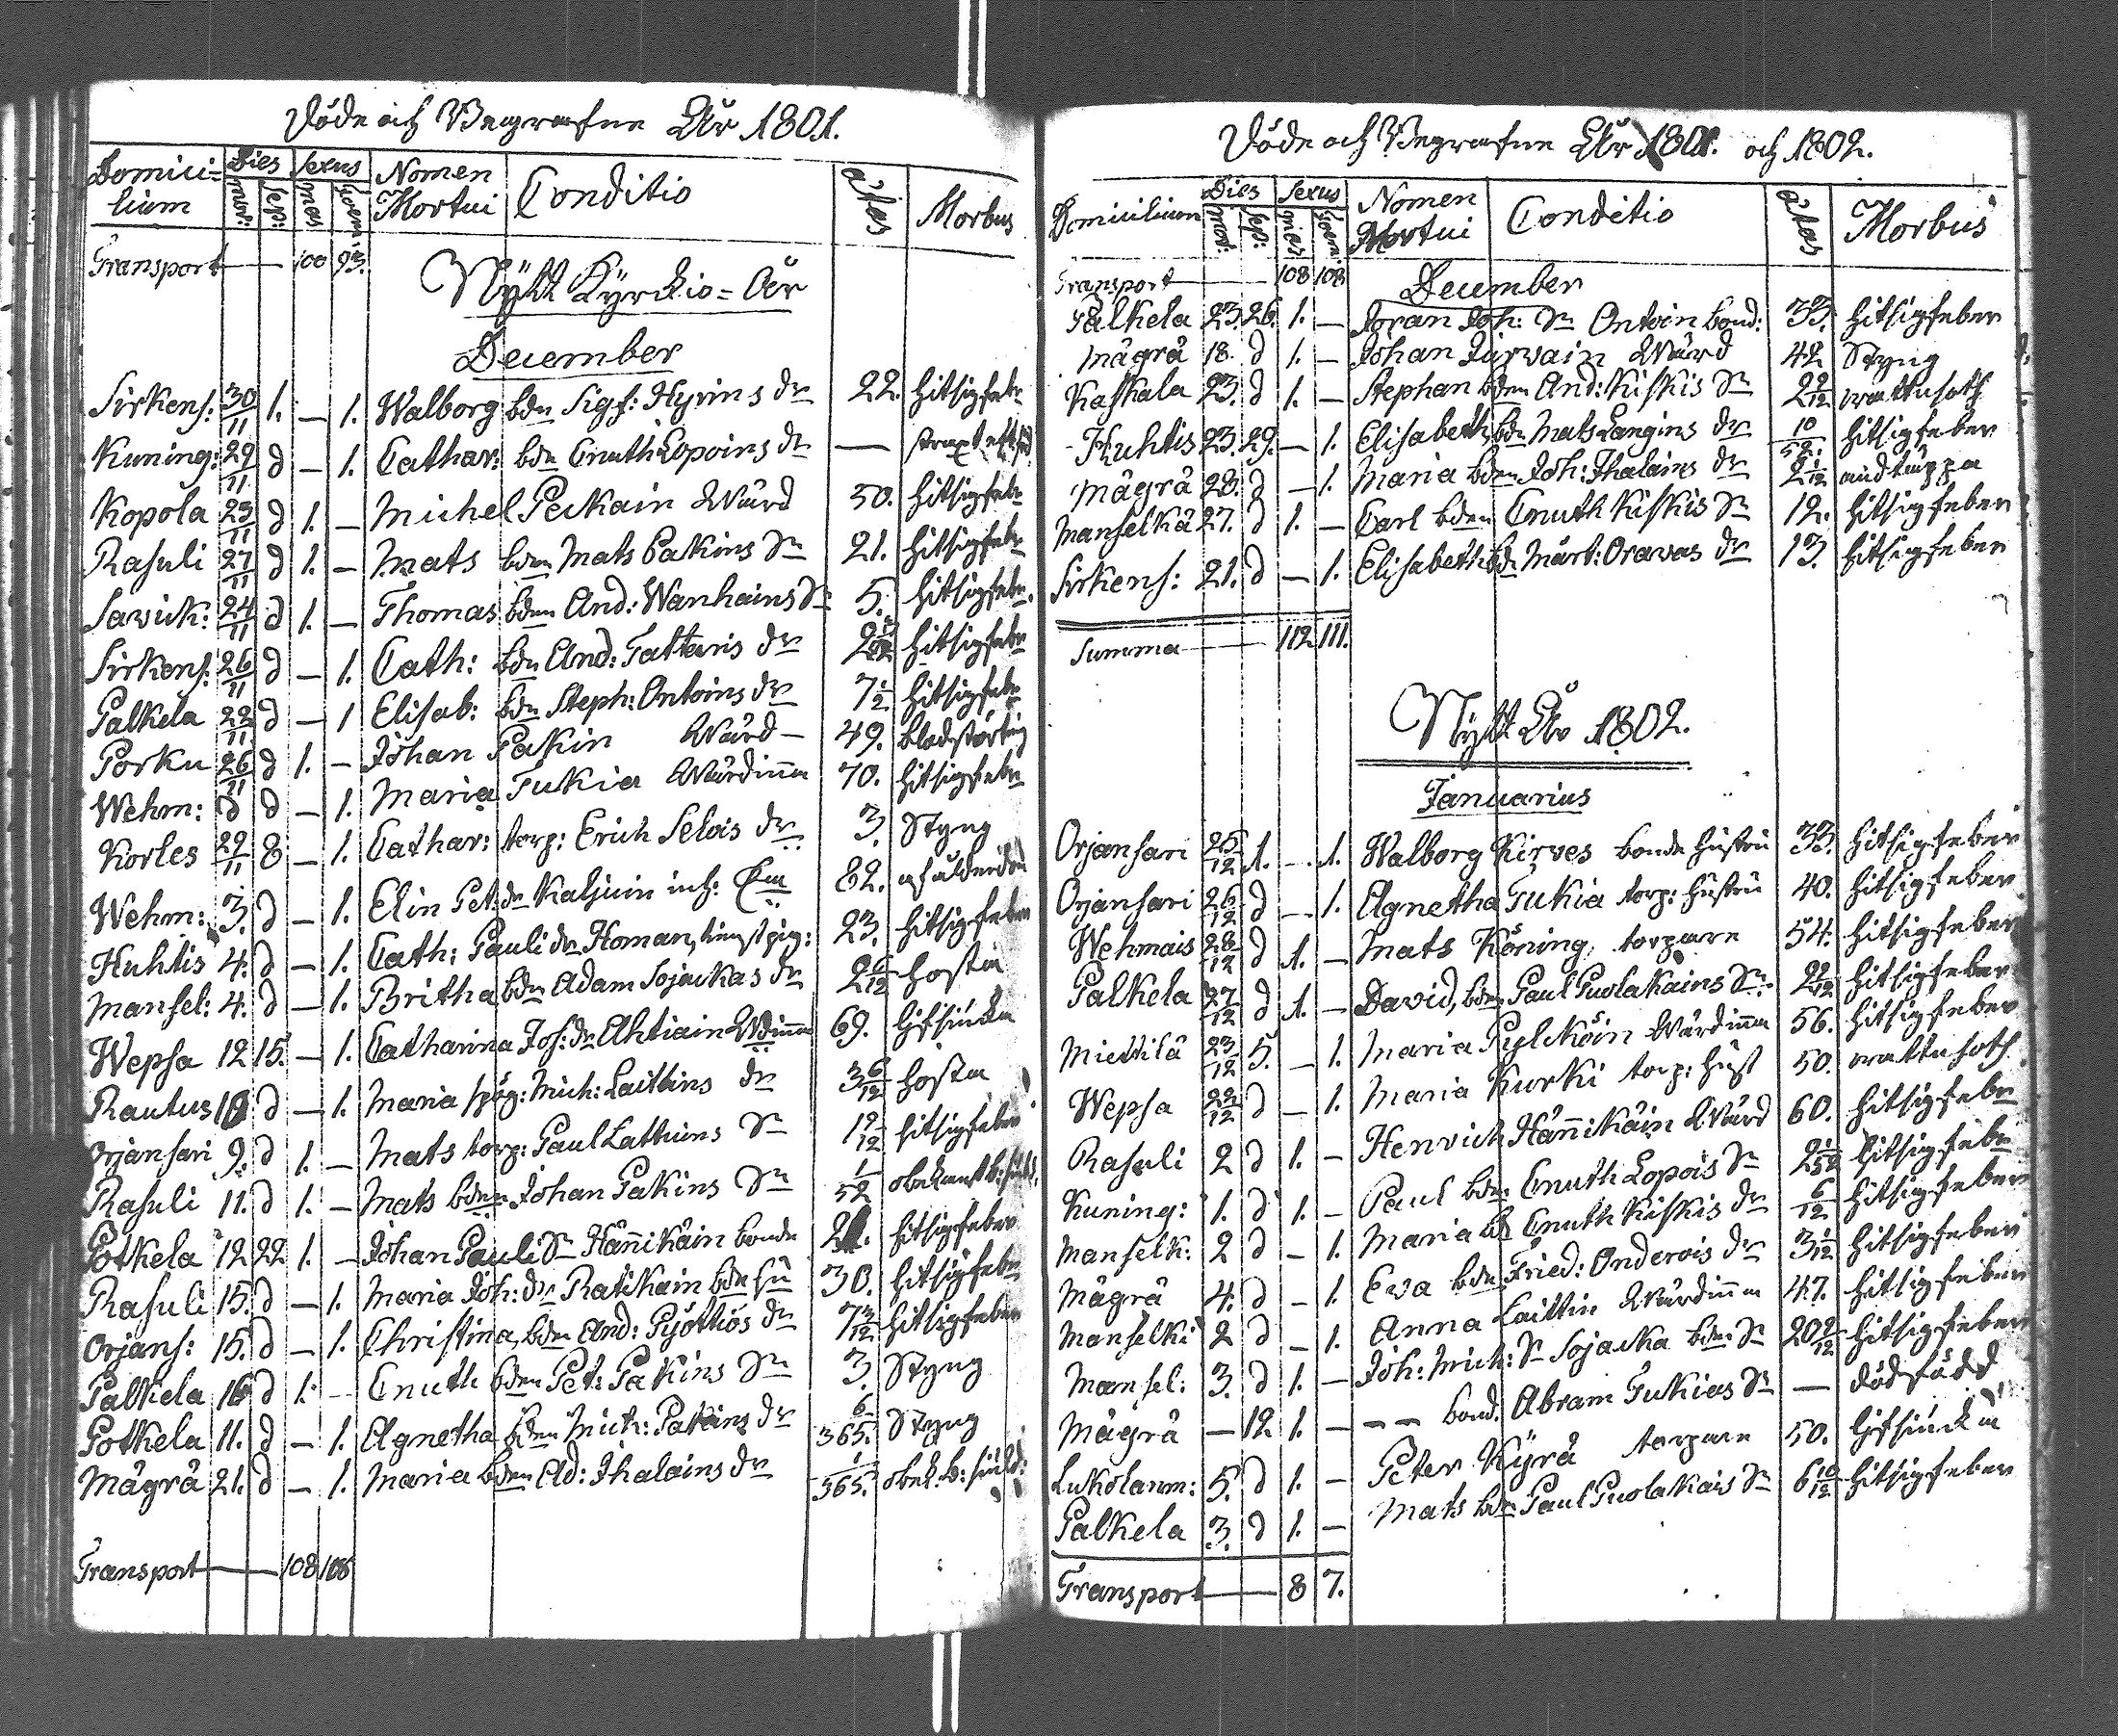 Döde och Begrafne År 1801.
Domici=lium Dies mor: sep: Sexus mas foem: Nomen Mortui Conditio ætas Morbus
Transport — 100 93.
Nÿtt Kÿrckio=År
December
Sirkens: 30/11 1. — 1. Walborg bdn Sigf: Hyvins dr 22. hitsigfebr
Kuning: 29/11 d — 1. Cathar: bdn Cnuth Lopoins dr —
Kopola 23/11 d 1. — Michel Peckain Wärd 50. hitsigfebr
Rasuli 27/11 d 1. — Mats bdn Mats Pakins Sn 21. hitsigfebr
Sawick: 24/11 d 1. — Thomas bdn And: Wanhains Sn 5. hitsigfebr
Sirkens: 26/11 d — 1. Cath: bdn And: Tattaris dr hitsigfebr
Palkela 22/11 d — 1 Elisab: bdn Steph: Ontoins dr 7½ hitsigfebr
Porku 26/11 d 1. — Johan Pakin Wärd — 49. blodstörtnig
Wehm: d d — 1. Maria Tukia Wärdinna 70. hitsigfebr
Korles 29/11 8 — 1. Cathar: torp: Erich Selois dr 3. Styng
Wehm: 3. d — 1. Elin Pet: dr Kaljuin inh: Em 82. ålderdom
Huhtis 4. d — 1. Cath: Pauli dr Homan, tienstpig: 23. hitsigfeber
Mansel: 4. d — 1. Britha bdn Adam Sojackas dr 2 6/12 hosta
Wepsa 12 15. — 1. Catharina Joh: dr Ahtiain Wdinna 69. lifsiucka
Rautus 10 d — 1. Maria spög: Mich: Laitins dr 3 6/12 hosta
Orjansari 9. d 1. — Mats torp: Paul Lattuins Sn 1 9/12 hitsigfeber
Rasuli 11. d 1. — Mats bdn Johan Pakins Sn 1/52 obekant b: siukd.
Potkela 12 22 1. — Johan Pauli Sn Hännikäin bonde hitsigfeber
Rasuli 15. d — 1. Maria Joh: dr Ratikain bde hu 30. hitsigfebr
Orjans: 15. d — 1. Christina, bdn And: Pÿöttiös dr 7 3/12 hitsigfeber
Palkela 16 d 1. — Cnuth bdn Pet: Pakins Sn 3. Styng
Potkela 11. d — 1. Agnetha bdn Mich: Pakins dr 6/365. Styng
Mägrä 21. d — 1. Maria bdn Ad: Ihalains dr 1/365. obek. b: siukd:
Transport — 108 108
Döde och Begrafne År 1801. och 1802.
Domicilium Dies mor: sep: Sexus mas foem: Nomen Mortui Conditio ætas Morbus
Transport — 108 108
December
Palkela 23. 26. 1. — Joran Joh: Sn Ontoin bond: 33. hitsigfeber
Mägrä 18. d 1. — Johan Järwäin Wärd 42 Styng
Kaskala 23. d 1. — Stephan bdn And: Kiskis Sn 2 2/12 wattusoth
Huhtis 23. 29. — 1. Elisabeth bdn Mats Langins dr 10/52. hitsigfeber
Mägrä 28. d — 1. Maria bdn Joh: Ihalains dr 2 1/12 andtäppa
Manselkä 27. d 1. — Carl bdn Cnuth Kiskis Sn 12. hitsigfeber
Sirkens: 21. d — 1. Elisabeth bdn Märt: Oravas dr 13. hitsigfeber
Summa — 112 111.
Nytt År 1802.
Januarius
Orjansari 25/12 1. — 1. Walborg Kirves bonde hustru 33. hitsigfeber
Orjansari 26/12 d — 1. Agnetha Tukia torp: hustru 40. hitsigfeber
Wehmais 28/12 d 1. — Mats Köning, torpare 54. hitsigfeber
Palkela 27/12 d 1. — David, bdn Paul Puolakains Sn 2 2/12 hitsigfeber
Miettilä 23/12 5. — 1. Maria Pylcköin Wärdinna 56. hitsigfeber
Wepsa 22/12 d — 1. Maria Kurki torp: hust 50. wattusoth
Rasuli 2 d 1. — Henrich Hännikäin Wärd 60. hitsigfebr
Kuning: 1. d 1. — Paul bdn Cnuth Lopois Sn 2 1/52 hitsigfebr
Manselk: 2 d — 1. Maria bd Cnuth Kiskis dr 6/12 hitsigfeber
Mägrä 4. d — 1. Eva bdn Fried: Onderois dr 3 1/12 hitsigfeber
Manselkä 2 d — 1. Anna Laittin Wärdinna 47. hitsigfeber
Mansel: 3. d 1. — Joh: Mich: Sn Sojacka bdn Sn 20 2/12 hitsigfeber
Mägrä — 12 1. — — — bond. Abram Tukias Sn — dödfödd
Lukolanm: 5. d 1. — Peter Kÿrä torpare 50. lifsiucka
Palkela 3. d 1. — Mats bdn Paul Puolakais Sn 6 10/12 hitsigfeber
Transport — 8 7.